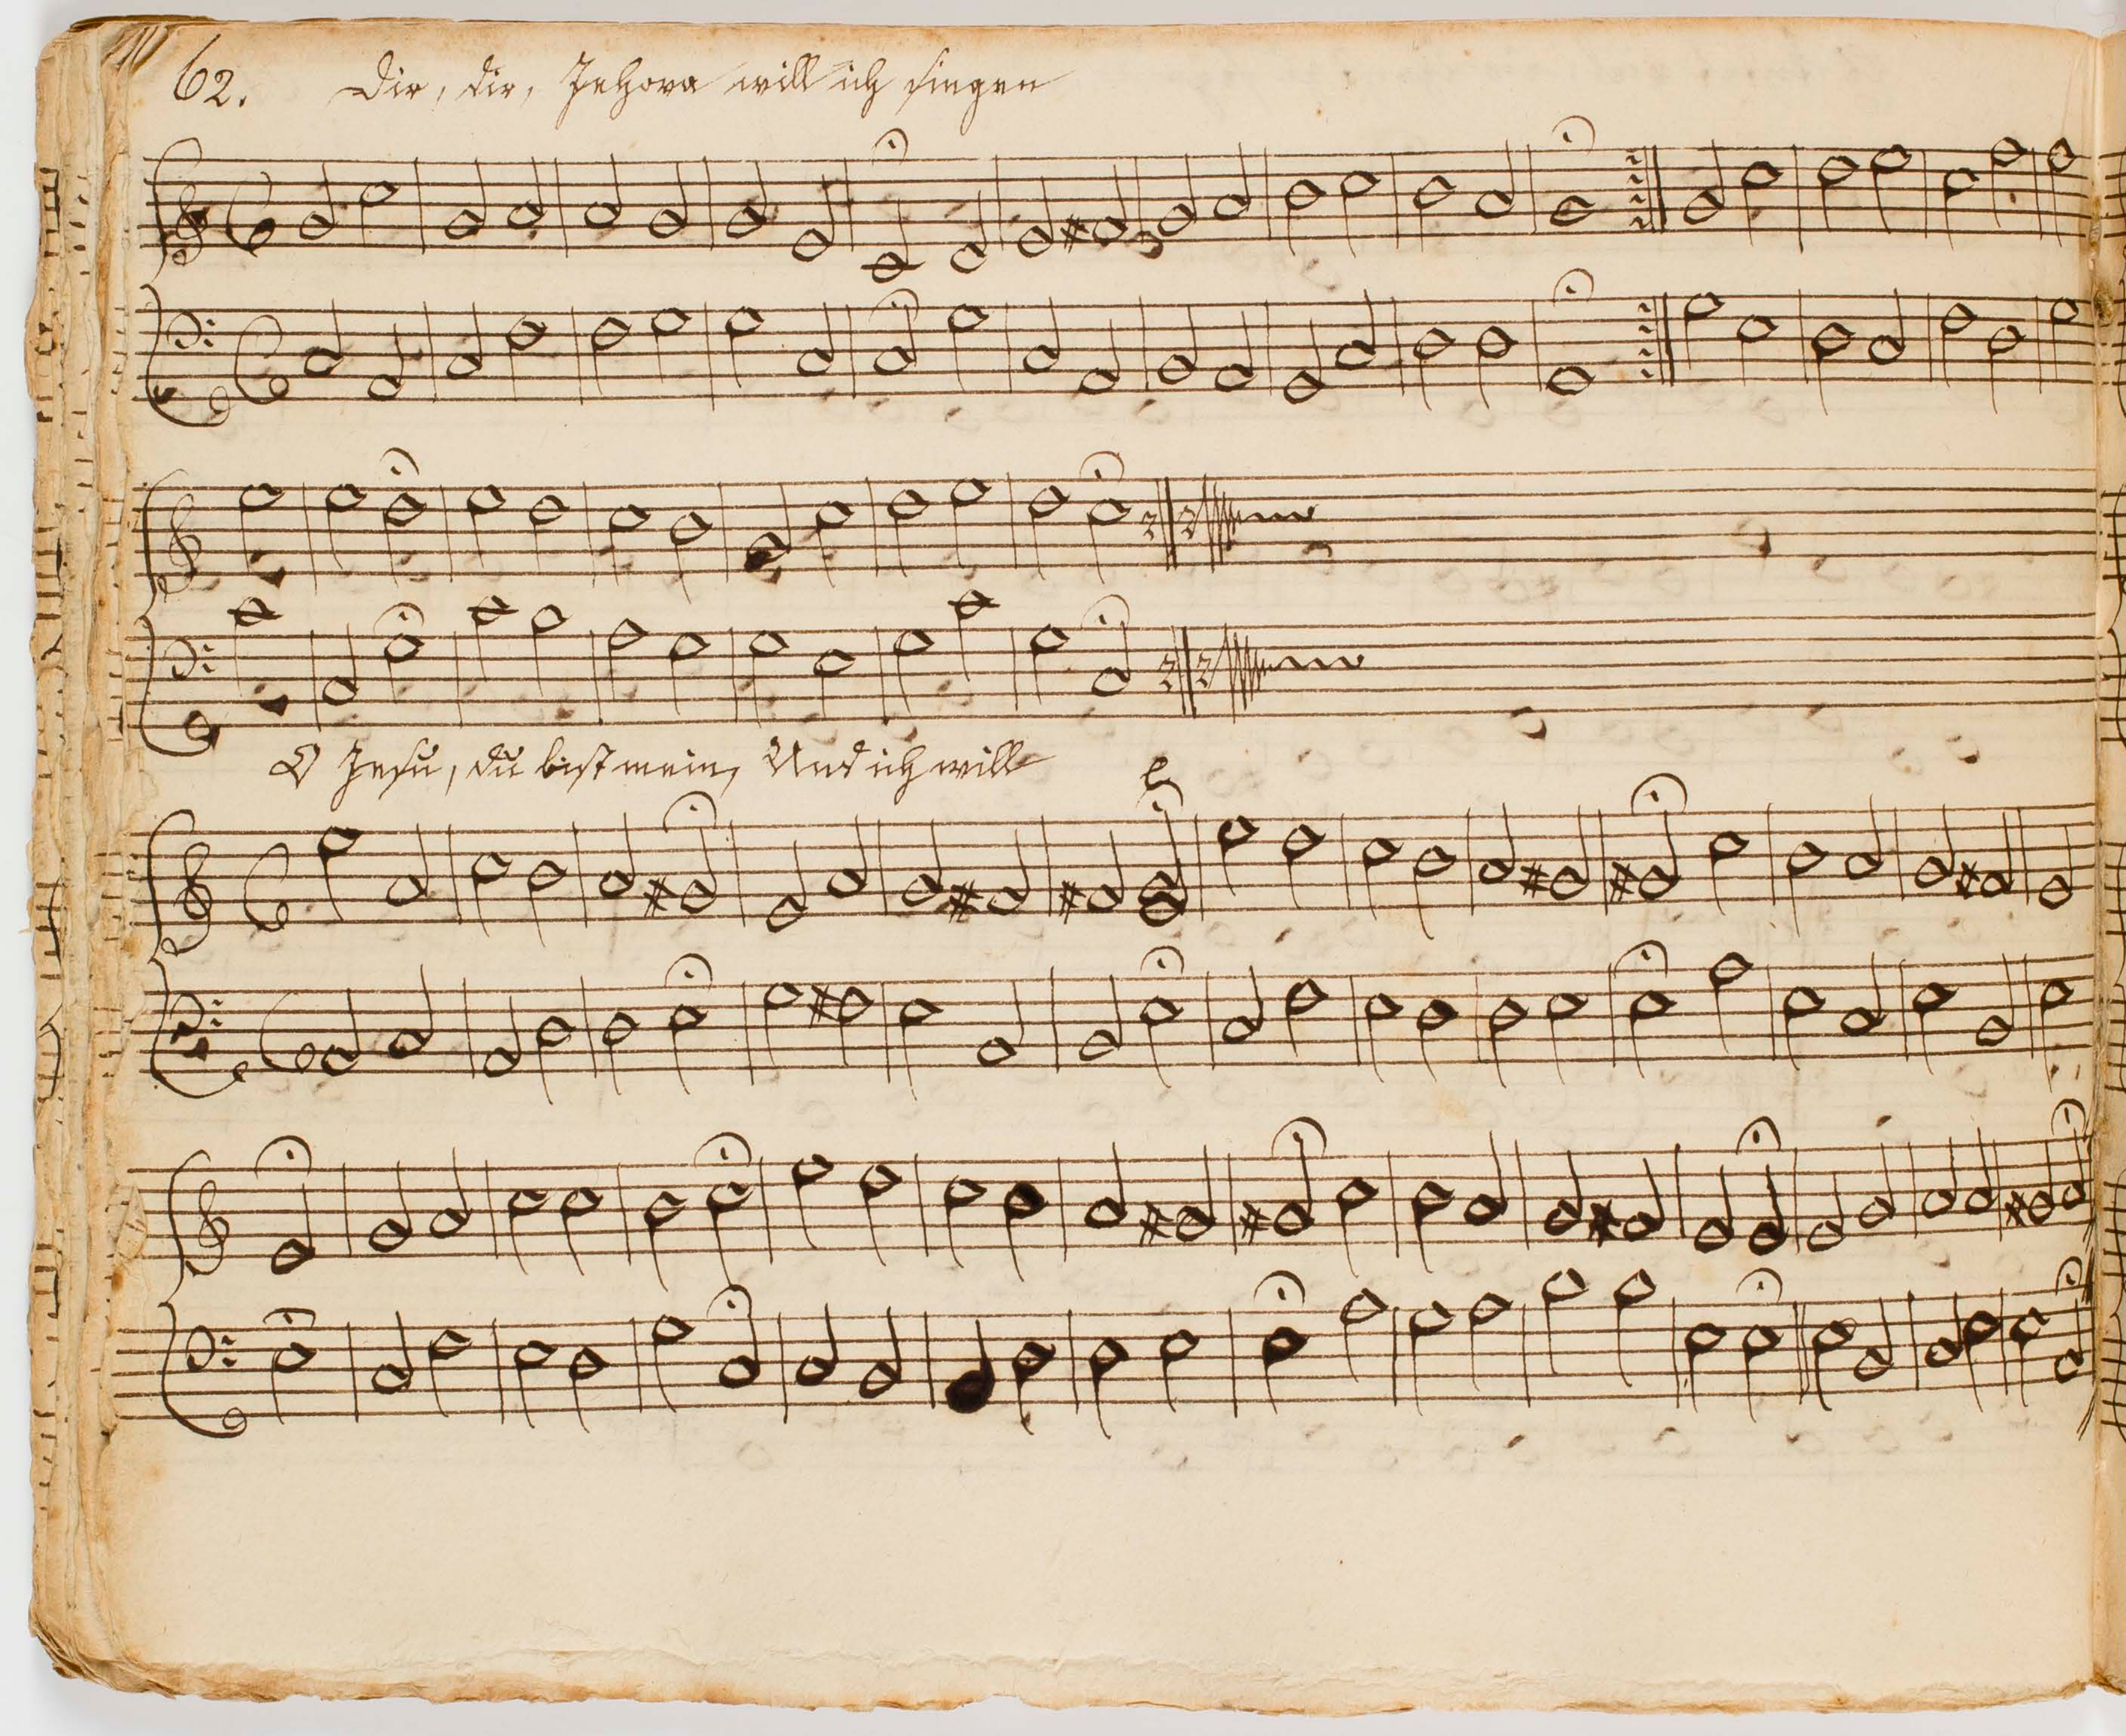 62. Dir, dir, Jehova will ich singen
O Jesu, du bist mein, Und ich will